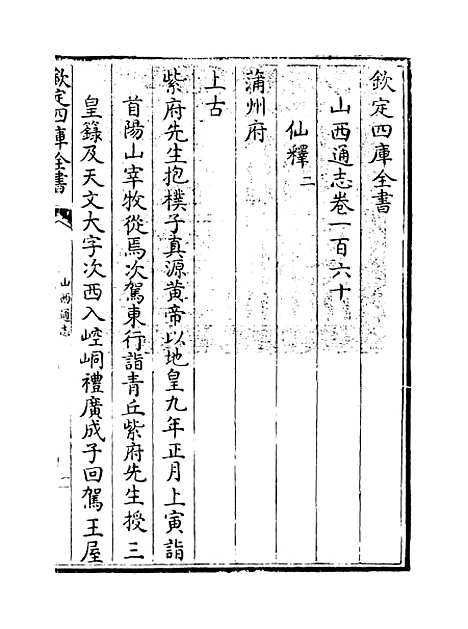 欽定四庫全書
山西通志卷一百六十
仙釋二
蒲州府
上古
紫府先生抱樸子真源黄帝以地皇九年正月上寅詣
首陽山宰牧從焉次駕東行詣青丘紫府先生授三
皇籙及天文大字次西入崆峒禮廣成子回駕王屋
欽定四庫全書
山西通志
一